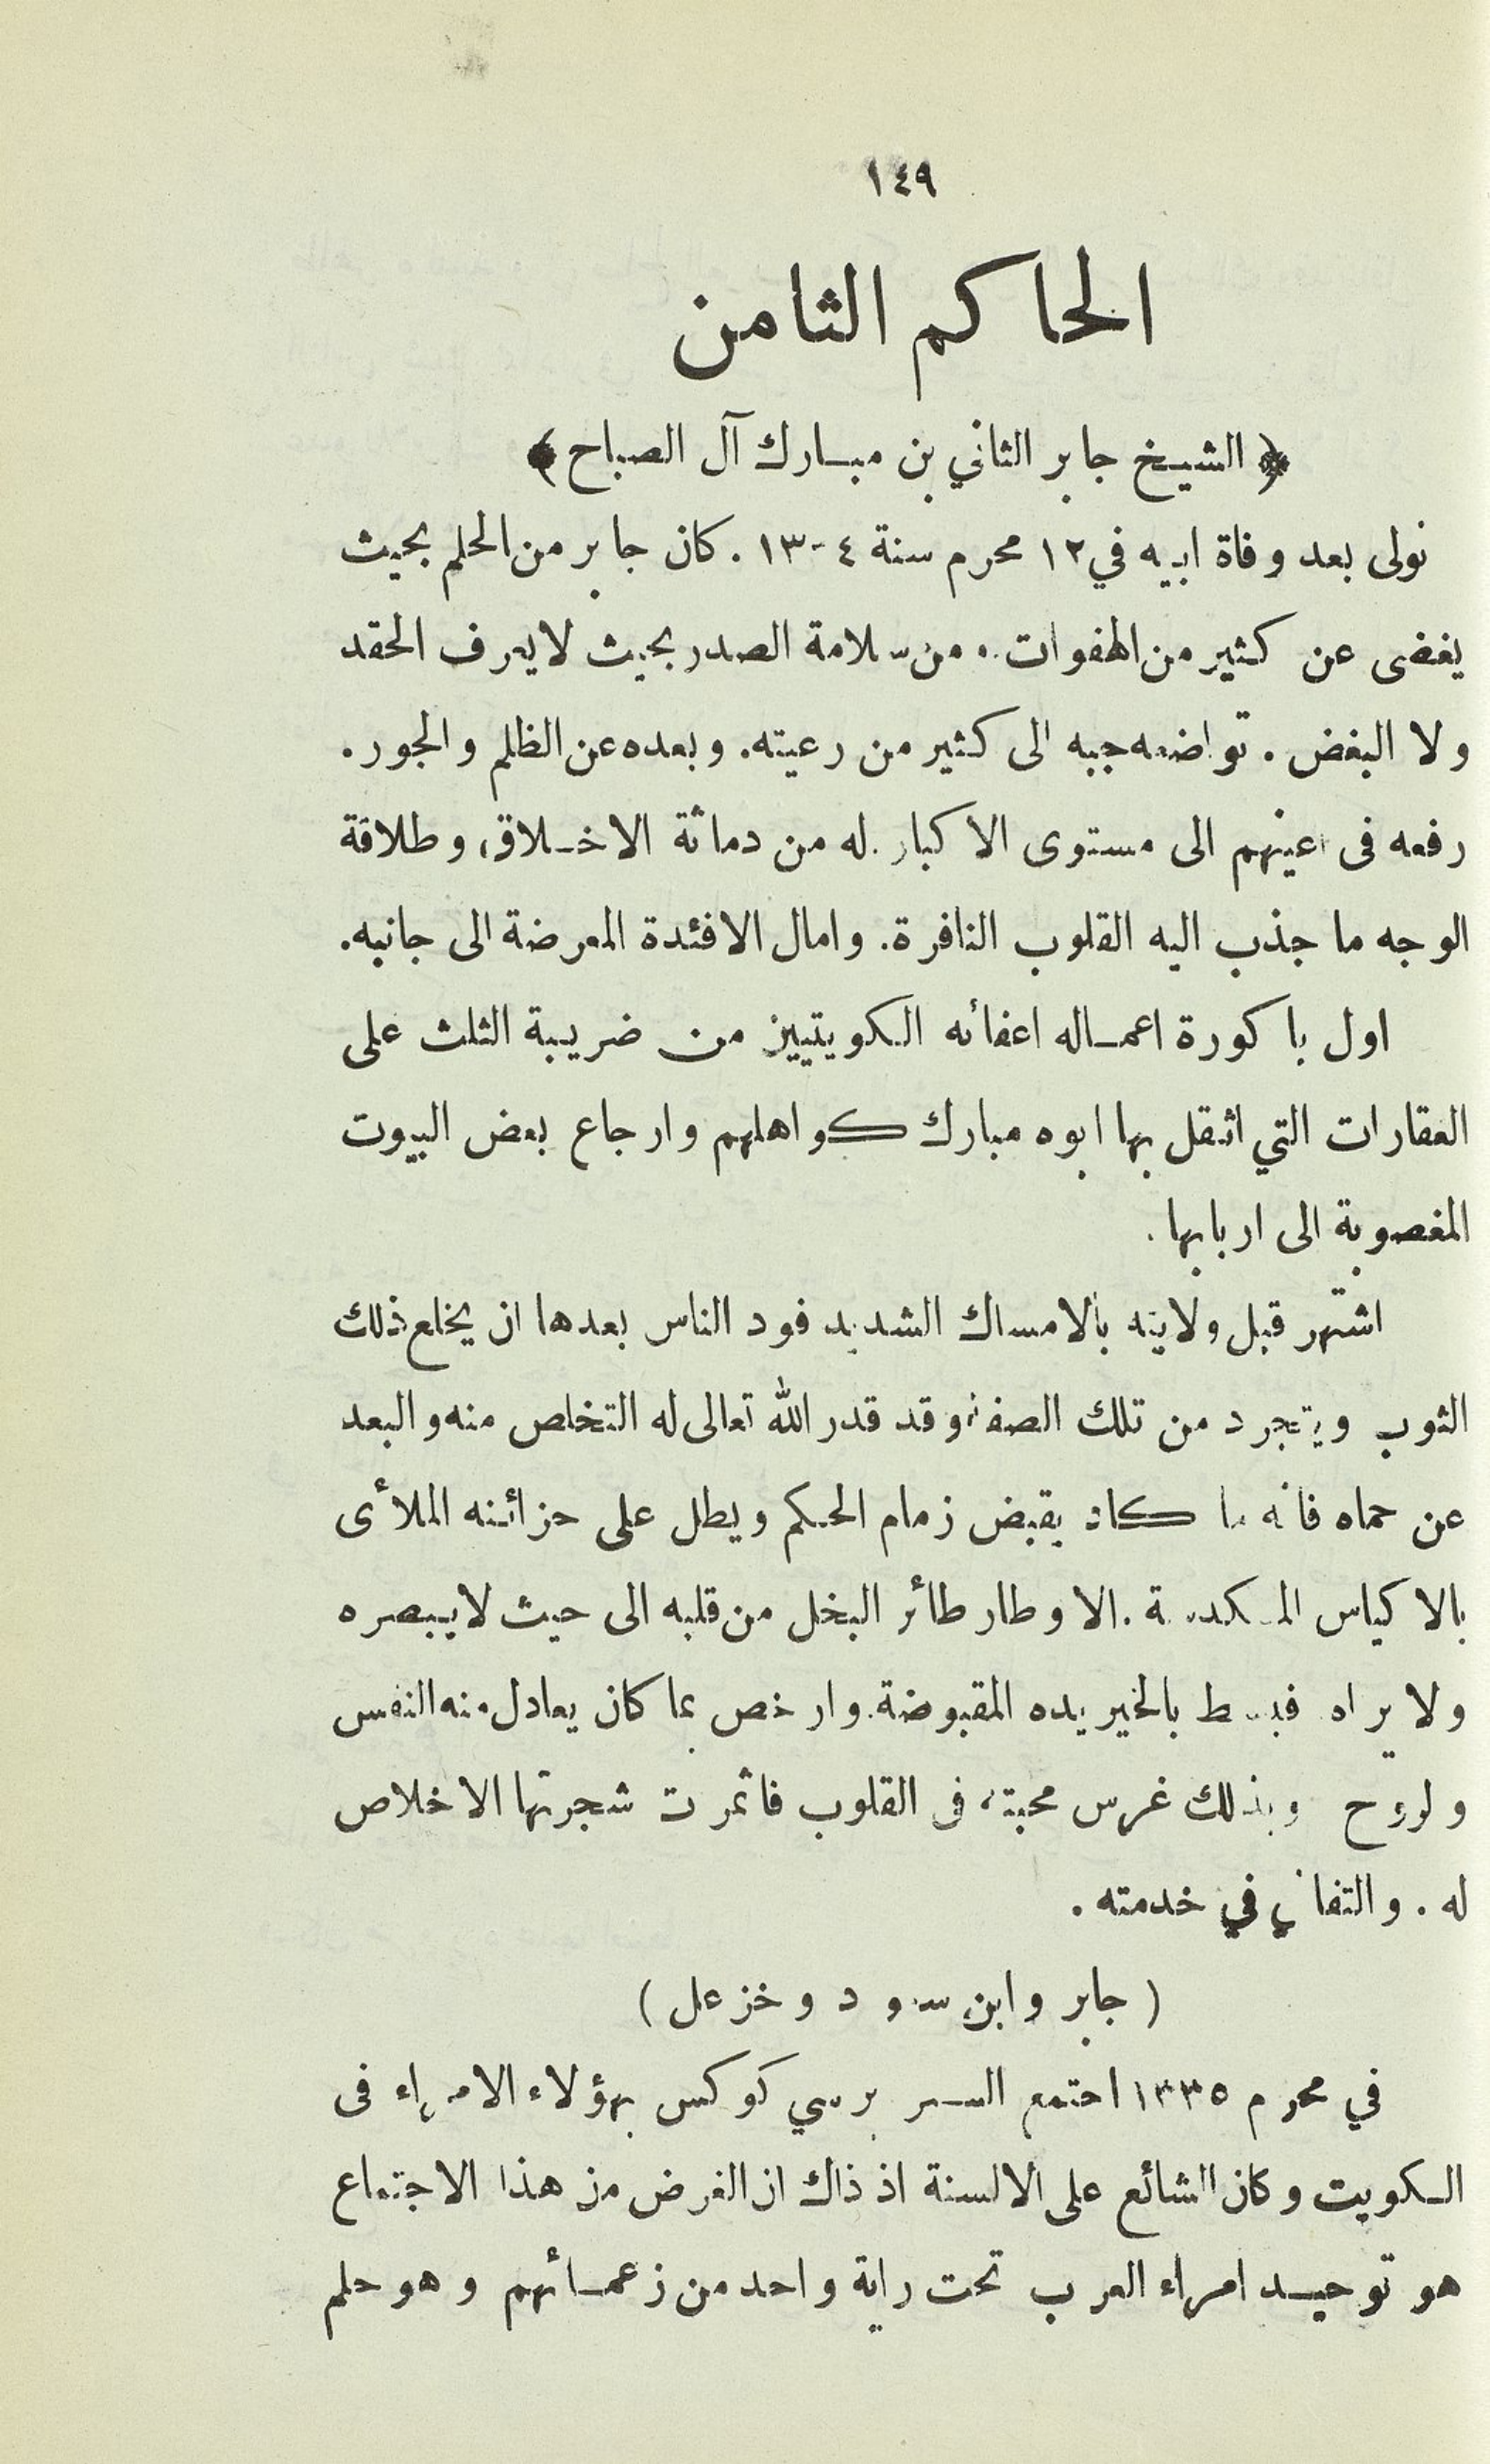 ١٤٩
الحاكم الثامن
﴿ الشيخ جابر الثاني بن مبارك آل الصباح ﴾
تولى بعد وفاة ابيه في ١٢ محرم سنة ١٣٠٤ . كان جابر من الحلم بحيث
يغضى عن كثير من الهفوات . ومن سلامة الصدر بحيث لا يعرف الحقد
ولا البغض . تواضعه حببه الى كثير من رعيته . وبعده عن الظلم والجور .
رفعه فى اعينهم الى مستوى الاكبار . له من دماثة الاخلاق، وطلاقة
الوجه ما جذب اليه القلوب النافرة . وامال الافئدة المعرضة الى جانبه .
اول باكورة اعماله اعفائه الكويتيين من ضريبة الثلث على
العقارات التي اثقل بها ابوه مبارك كواهلهم وارجاع بعض البيوت
المغصوبة الى اربابها .
اشتهر قبل ولايته بالامساك الشديد فود الناس بعدها ان يخلع ذلك
الثوب ويتجرد من تلك الصفة وقد قدر الله تعالى له التخلص منه والبعد
عن حماه فانه ما كاد يقبض زمام الحكم ويطل على خزائنه الملأى
بالاكياس المكدسة . الا وطار طائر البخل من قلبه الى حيث لا يبصره
ولا يراه فبسط بالخير يده المقبوضة . وارخص بما كان يعادل منه النفس
ولروح وبذلك غرس محبته فى القلوب فاثمرت شجرتها الاخلاص
له . والتفاني في خدمته .
( جابر وابن سعود وخزعل )
في محرم ١٣٣٥ اجتمع السر برسي كوكس بهؤلاء الامراء فى
الكويت وكان الشائع على الالسنة اذ ذاك ان الغرض من هذا الاجتماع
هو توحيد امراء العرب تحت راية واحد من زعمائهم وهو حلم